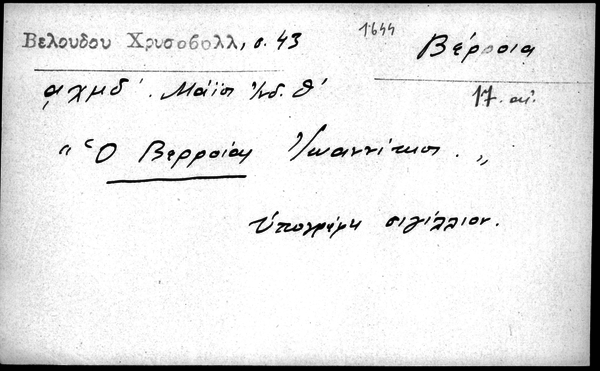 Βελουδου Χρυσοβουλλ, σ. 43
1644
Βέρροια
͵αχμδ΄. Μαΐῳ Ἰνδ. θ΄
17. αἰ.
"Ὁ Βερροίας Ἰωαννίκιος."
Ὑπογράφει σιγίλλιον.